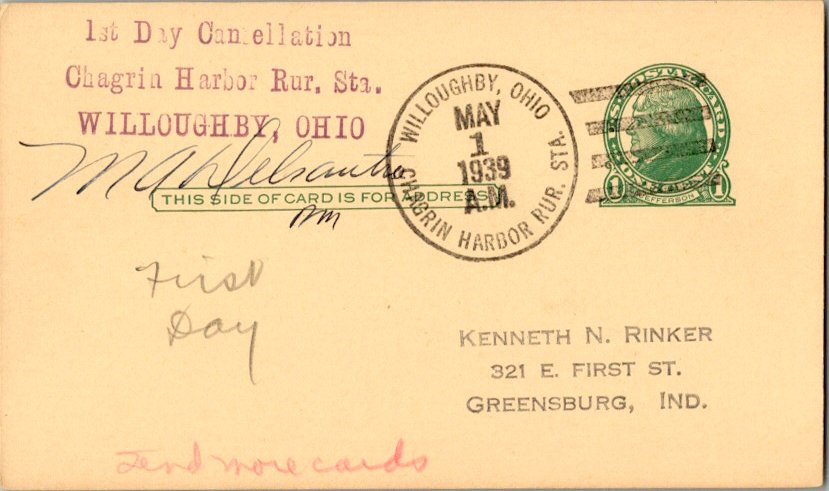 1st Day Cancellation
Chagrin Harbor Rur. Sta.
WILLOUGHBY, OHIO
WILLOUGHBY, OHIO
MAY
1
1939
A.M.
CHAGRIN HARBOR RUR. STA.
U.S. POSTAL CARD
ONE CENT
1 1
JEFFERSON
M A Delsantro
THIS SIDE OF CARD IS FOR ADDRESS
pm
First
Day
KENNETH N. RINKER
321 E. FIRST ST.
GREENSBURG, IND.
Send more cards